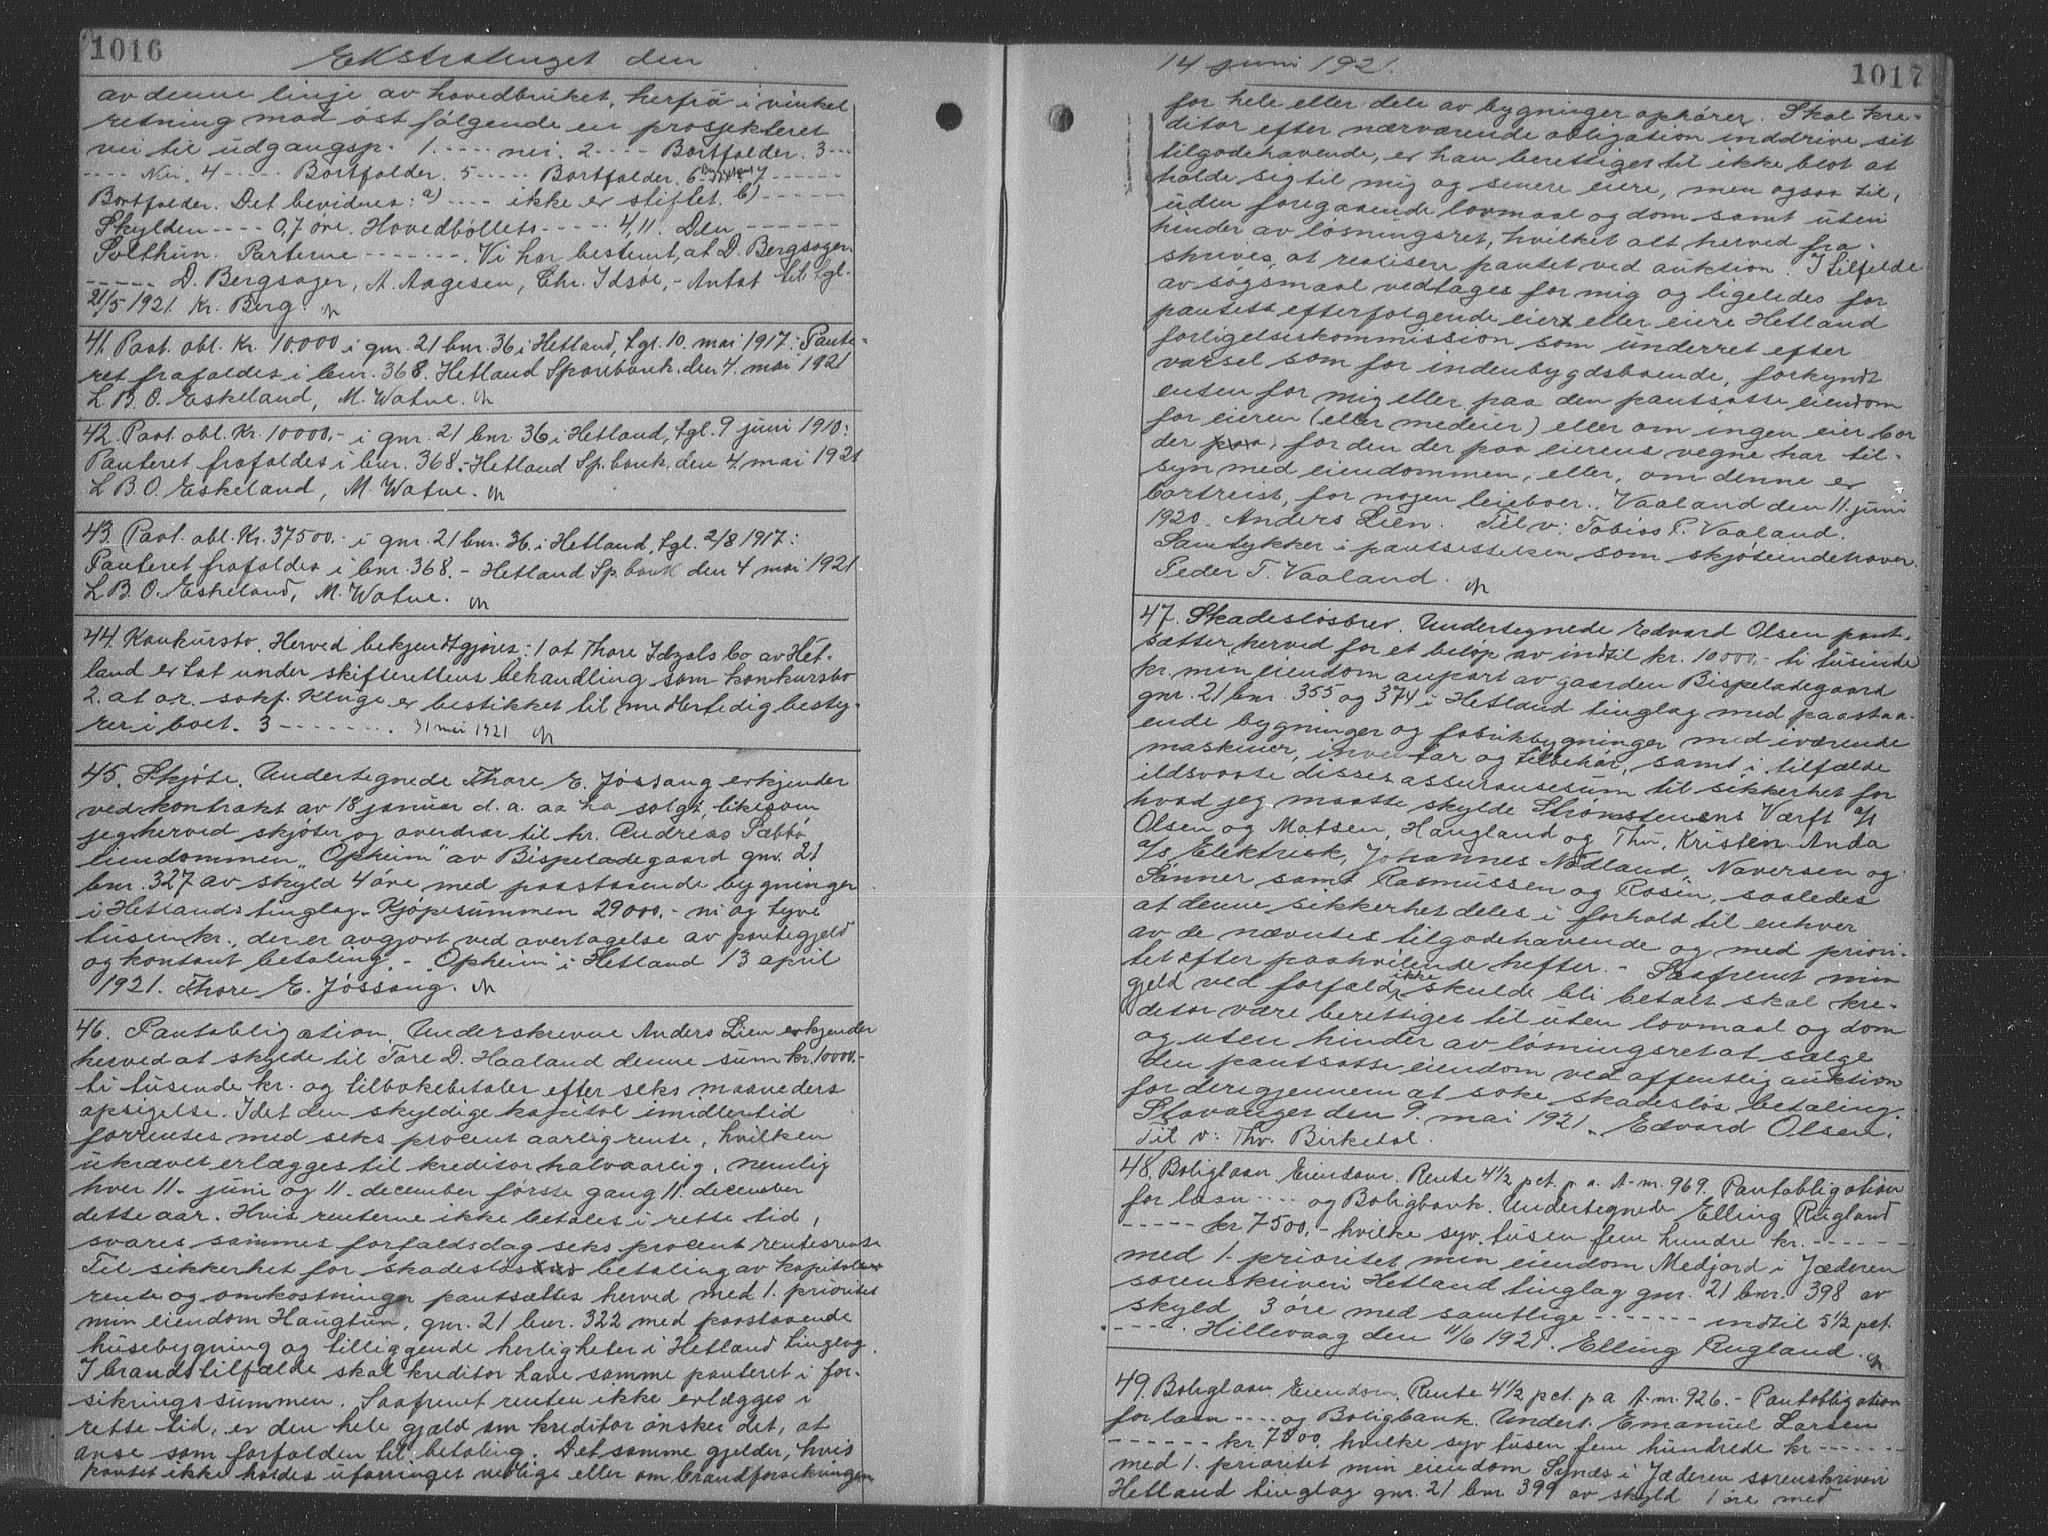 1016
Ekstratinget den
av denne linje av hovedbruket, herfra i vinkel
retning mod øst følgende en prosjekteret
vei til udgangsp. 1. ---- nei. 2 ---- Bortfalder. 3 ---
---- Nei. 4 ---- Bortfalder. 5 ----- Bortfalder. 6 ---- 7 ------
Bortfalder. Det bevidnes: a) ---- ikke er stiftet. b) ------
Skylden ---- 0,7 øre. Hovedbøllets ----- 4,11. Den ------
Solthun. Parterne -------. Vi har bestemt, at D. Bergsagen
----- D. Bergsager, A. Aagesen, Chr. Idsøe, - Antat til tgl.
21/5 1921 Kr. Berg.
41. Paat. obl. Kr. 10.000 i gnr. 21 bnr. 36 i Hetland, tgl. 10. mai 1917: Pante-
ret frafaldes i bnr. 368. Hetland Sparebank. den 4. mai 1921
L. B. O. Eskeland, M. Watne.
42. Paat. obl. Kr. 10000,- i gnr. 21 bnr 36 i Hetland, tgl. 9 juni 1910:
Panteret frafaldes i bnr. 368.- Hetland Sp.bank. den 4. mai 1921
L B. O. Eskeland, M. Watne.
43. Paat. obl. Kr. 37500.- i gnr. 21 bnr. 36. i Hetland, tgl. 2/8 1917:
Panteret frafaldes i bnr. 368.- Hetland Sp.bank den 4 mai 1921
L B. O. Eskeland, M. Watne.
44. Konkursbo. Herved bekjendtgjøres: 1 at Thore Idzals bo av Het-
land er tat under skifterettens behandling som konkursbo
2. at or. sakf. Kluge er bestikket til midlertidig besty-
rer i boet. 3 -------- 31 mai 1921
45. Skjøte. Undertegnede Thore E. Jøssang erkjender
ved kontrakt av 18 januar d. a. aa ha solgt, likesom
jeg herved skjøter og overdrar til hr. Andreas Sæbbø
eiendommen "Opheim" av Bispeladegaard gnr. 21
bnr. 327 av skyld 4 øre med paastaaende bygninger
i Hetlands tinglag. Kjøpesummen 29000,- ni og tyve
tusen kr., der er avgjort ved overtagelse av pantegjeld
og kontant betaling. - "Opheim" i Hetland 13 april
1921. Thore E. Jøssang.
46. Pantobligation. Underskrevne Anders Lien erkjender
herved at skylde til Tore D. Haaland denne sum kr. 10000.-
ti tusende kr. og tilbakebetaler efter seks maaneders
opsigelse. I det den skyldige kapital imidlertid
forrentes med seks procent aarlig rente, hvilken
ukrævet erlægges til kreditor halvaarlig, nemlig
hver 11. juni og 11. december første gang 11. december
dette aar. Hvis renterne ikke betales i rette tid,
svares sammes forfaldsdag seks procent rentesrente
Til sikkerhet for skadesløs betaling av kapitalen
rente og omkostninger pantsættes herved med 1. prioritet
min eiendom Haugtun, gnr. 21 bnr. 322 med paastaaende
husebygning og tilliggende herligheter i Hetland tinglag.
I brandstilfælde skal kreditor have samme panteret i for-
sikringssummen. Saafremt renten ikke erlægges i
rette tid, er den hele gjæld om kreditor ønsker det, at
anse som forfalden til betaling. Det samme gjelder, hvis
pantet ikke holdes uforringet vedlige eller om brandforsikringen
1017
14 juni 1921.
for hele eller dele av bygninger ophører. Skal kre-
ditor efter nærværende obligation inddrive sit
tilgodehavende, er han berettiget til ikke blot at
holde sig til mig og senere eiere, men ogsaa til,
uden foregaaende lovmaal og dom samt uten
hinder av løsningsret, hvilket alt herved fra-
skrives, at realisere pantet ved auktion. I tilfelde
av søgsmaal vedtages for mig og ligeledes for
pantets efterfølgende eier eller eiere Hetland
forligelseskommission som underret efter
varsel som for indenbygdsboende, forkyndt
enten for mig eller paa den pantsatte eiendom
for eieren (eller medeier) eller om ingen eier bor
der paa, for den der paa eierens vegne har til-
syn med eiendommen, eller, om denne er
bortreist, for nogen leieboer. Vaaland den 11. juni
1920. Anders Lien. Til v: Tobias P. Vaaland.
Samtykker i pantsettelsen som skjøteindehaver.
Peder T. Vaaland.
47. Skadesløsbrev. Undertegnede Edvard Olsen pant-
sætter herved for et beløp av indtil kr. 10000.- ti tusinde
kr. min eiendom anpart av gaarden Bispeladegaard
gnr. 21 bnr. 355 og 374 i Hetland tinglag med paastaa-
ende bygninger og fabrikbygninger med iværende
maskiner, inventar og tilbehør, samt i tilfælde
ildsvaade disses assuransesum til sikkerhet for
hvad jeg maatte skylde Strømstensns Værft a/s
Olsen og Matsen, Haugland og Thu, Kristen Anda
a/s Elektrisk, Johannes Nødland, Naversen og
Sønner samt Rasmussen og Rosin, saaledes
at denne sikkerhet deles i forhold til enhver
av de nævntes tilgodehavende og med priori-
tet efter paahvilende hefter. - Saafremt min
gjeld ved forfald ikke skulde bli betalt skal kre-
ditor være berettiget til uten lovmaal og dom
og uten hinder av løsningsret at sælge
den pantsatte eiendom ved offentlig auktion
for derigjennem at søke skadesløs betaling.
Stavanger den 9. mai 1921. Edvard Olsen.
Til v: Thv. Birkedal.
48. Boliglaan Eiendom. Rente 4 1/2 pct. p. a. A-nr. 969. Pantobligation
for laan ---- og Boligbank. Undertegnede Elling Rugland
----- kr 7500,- hvilke syv tusen fem hundre kr. ------
med 1. prioritet min eiendom Medjord i Jæderen
sorenskriveri Hetland tinglag gnr. 21 bnr. 398 av
skyld 3 øre med samtlige ------- indtil 5 1/2 pct.
-----. Hillevaag den 11/6 1921. Elling Rugland.
49. Boliglaan Eiendom. Rente 4 1/2 pct. p a A-nr. 926. - Pantobligation
for laan ---- og Boligbank. Undert. Emanuel Larsen
------ kr. 7500. hvilke syv tusen fem hundrede kr ------
med 1. prioritet min eiendom Synds i Jæderen sorenskriveri
Hetland tinglag gnr. 21 bnr 399 av skyld 1 øre med